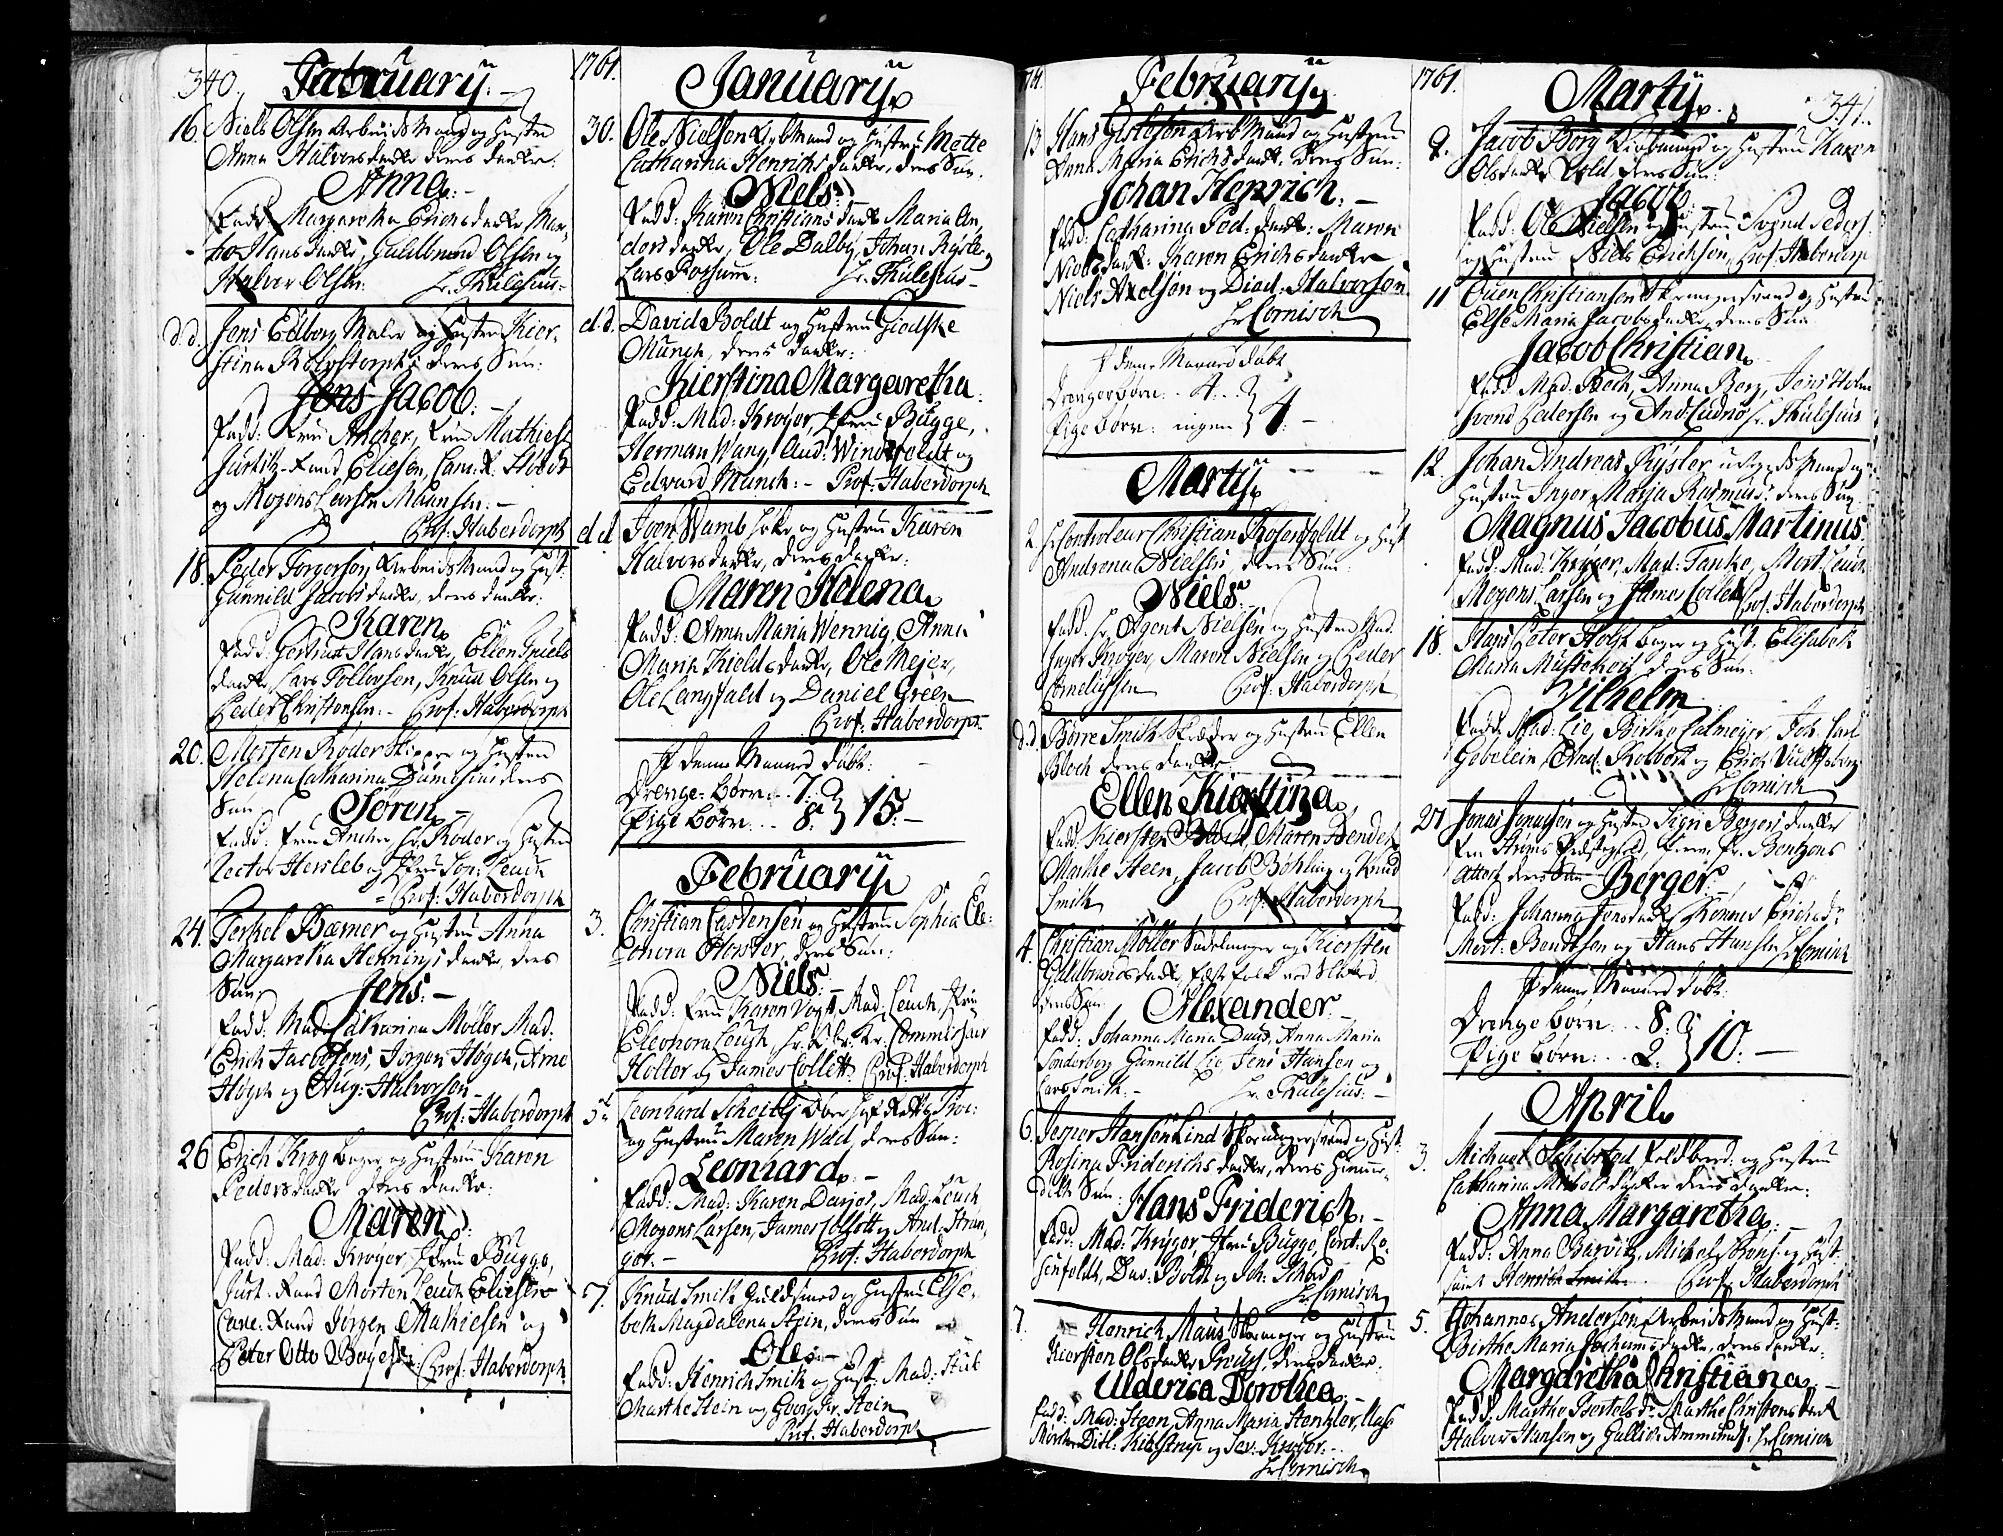 340.
Februarÿ.
16. Niels Olsen Arbeids Mand og Hustru
Anna Halvorsdatter deres Datter:
Anna.
Fadd: Margaretha Erichsdatter, Mar-
Hansdatter, Guldbrand Olsen og
Halver Olsen. Hr. Thulesius.
d.d. Jens Edberg Maler og Hustru Kier-
stina deres Søn:
Jens Jacob.
Fadd: Fru Ancher, Fru Mathiesen
Justitz-Raad Eliesen, Canc. R.
og Mogens Larsen Maansen.
Prof: Haberdorph
18. Peder Torgersen, Arbeids Mand og Hust:
Gunnild Jacobsdatter, deres Datter:
Karen.
Fadd: Giertrud Hansdatter, Ellen Niels
datter, Lars Tollevsen, Knud Olsen og
Peder Christensen. Prof: Haberdorph
20. Morten Røder Skipper og Hustru
Helena Catharina deres
Søn
Søren.
Fadd: Fru Ancher, Hr. Røder og Hustru
Rector Hersleb og Leuch
Prof: Haberdorph
24. Terkel Bæmer og Hustru Anna
Margaretha Hennings datter, deres
Søn
Jens.
Fadd: Mad. Catharina Møller Mad.
Erich Jacobsens, Jørgen Høgch, Arne
Høgch og Aug: Halvorsen
Prof: Haberdorph
26 Erich Krog Bager og Hustru Karen
Pedersdatter deres Datter:
Maren.
Fadd: Mad: Krøger, Fru Bugge,
Just: Raad Morten Leuch Eliesen
Canc: Raad Jørgen Mathiesen og
Peter Otto Bøyesen. Prof: Haberdorph
1761.
Januarÿ.
30. Ole Nielsen Arb: Mand og Hustru Mette
Catharina Henrichsdatter, deres Søn.
Niels.
Fadd: Karen Christiansdatter Maria An-
dersdatter, Ole Dalby, Johan Rytter og
Lars Rossum. Hr. Thulesius
d.d. David Boldt og Hustru Giedske
Munch, deres Datter:
Kierstina Margaretha.
Fadd: Mad: Krøger, Fru Bugge,
Herman Wang, And: Windfeldt og
Edvard Munch. Prof: Haberdorph
d.d Iver Wamb og Hustru Karen
Halvorsdatter, deres Datter:
Maren Helena.
Fadd: Anna Maria Wennig, Anna
Maria Kieldsdatter, Ole Mejer,
Ole Langfald og Daniel Green
Prof: Haberdorph
I denne Maaned døbt:
Drenge-Børn. 7.
Pige Børn. 8. } 15.
Februarÿ.
3. Christian Castensen og Hustru Sophia Ele-
onora Florster, deres Søn:
Niels.
Fadd: Fru Karen Vogt, Mad. Leuch, Fru
Eleonora Leuch, Hr. Commerseur
Holter og James Collett. Prof: Haberdorph
5. Leonhard Scheitlj
og Hustru Maren Wild, deres Søn:
Leonhard.
Fadd: Mad: Karen Darjes, Mad. Leuch
Mogens Larsen, James Collett og And. Stran-
ger. Prof: Haberdorph
7. Knud Smith Guldsmed og Hustru Else-
beth Magdalena Stein, deres Søn
Ole.
Fadd: Henrich Smith og Hust: Mad:
Marthe Stein og Georg Fr. Stein
Prof: Haberdorph
1761.
Februarÿ.
13. Hans Gislesen Arb Mand og Hustru
Anna Maria Erichsdatter deres Søn:
Johan Henrich.
Fadd: Catharina Ped: datter: Maren
Nielsdatter: Karen Erichsdatter
Niels Axelsøn og Died: Halvorsøn
Hr Cornisch
I denne Maaned døbt
Drengebørn. 4.
Pigebørn: ingen } 4.
Martÿ.
2. Hr Controleur Christian Rosenfeldt og Hust
Andrena Nielsen, deres Søn:
Niels.
Fadd: Hr Agent Nielsen og Hustru Mad.
Inger Krøger, Maren Nielsen og Peder
Corneliussen Prof: Haberdorph
d.d. Børre Smith Skræder og Hustru Ellen
Bloch deres Datter
Ellen Kierstina.
Fadd: Kiersten Maren Bendt
Marthe Steen, Jacob Bøhling og Knud
Smith Prof: Haberdorph
4. Christian Møller Sadelmager og Kiersten
Guldbrandsdatter,
deres Søn
Alexander.
Fadd: Johanna Maria Anna Maria
Sonderborg Gunnild Lie, Jens Hansen og
Lars Smith. Hr. Thulesius.
6. Jesper Hansen Lind Skomagersvend og Hust:
Rosina Friderichsdatter, deres
døbte Søn:
Hans Friderich.
Fadd: Mad: Krøger, Fru Bugge, Cont: Ro-
senfeldt, Dav: Boldt og
Hr Cornisch
7. Henrich Maus Skomager og Hustru
Kiersten Olsdatter deres Datter:
Ulderica Dorothea.
Fadd: Mad: Steen, Anna Maria Stentzler,
Ditl: Kiølstrup og Sev: Krøger.
Hr Cornisch
1761.
Martÿ.
341.
9. Jacob Berg Kiøbmand og Hustru Karen
Olsdatter deres Søn:
Jacob.
Fadd: Ole Nielsen og Hustru Svend Peders:
og Hustru Niels Erichsen, Prof: Haberdorp
11 Ouen Christiansen Skomagersvend og Hustru
Else Maria Jacobsdatter, deres Søn
Jacob Christian.
Fadd: Mad: Bech, Anna Berg, Jens Holm
Svend Pedersen og And: Ludvig Hr. Thulesius
12. Johan Andreas Kÿsler og
Hustru Inger Maria Rasmus: deres Søn
Magnus Jacobus Martinus.
Fadd: Mad: Krøger, Mad: Tanke, Mort: Leuch
Mogens Larsen og James Collett Prof: Haberdorph
18. Hans Peter Holst Bager og Hust: Elisabeth
Maria deres Søn:
Vilhelm.
Fadd: Mad: Lie, Birthe Calmeyer, Joh: Carl
Gebelein, And: Robbert og Erich
Hr Cornisch
27 Jonas Jonassen og Hustru Sigri Bergersdatter
Bentzons
attest deres Søn
Berger.
Fadd: Johanna Jonsdatter, Erichsdr
Mort: Bendtsen og Hans Hansen Hr Cornisch
I denne Maaned døbt:
Drenge børn. 8.
Pige Børn. 2. } 10.
Aprili.
3. Michael Schilstad og Hustru
Catharina deres Datter:
Anna Margaretha.
Fadd: Anna Barvits, Michel og Hust:
samt Henrich Smith. Prof: Haberdorph
5. Johannes Andersen, Arbeids Mand og Hust:
Birthe Maria Jochumsdatter, deres Datter:
Margaretha Christiana.
Fadd: Marthe Bertelsdr Marthe Christensdatter
Halver Hansen og Gullich Ammunds: Hr Cornisch